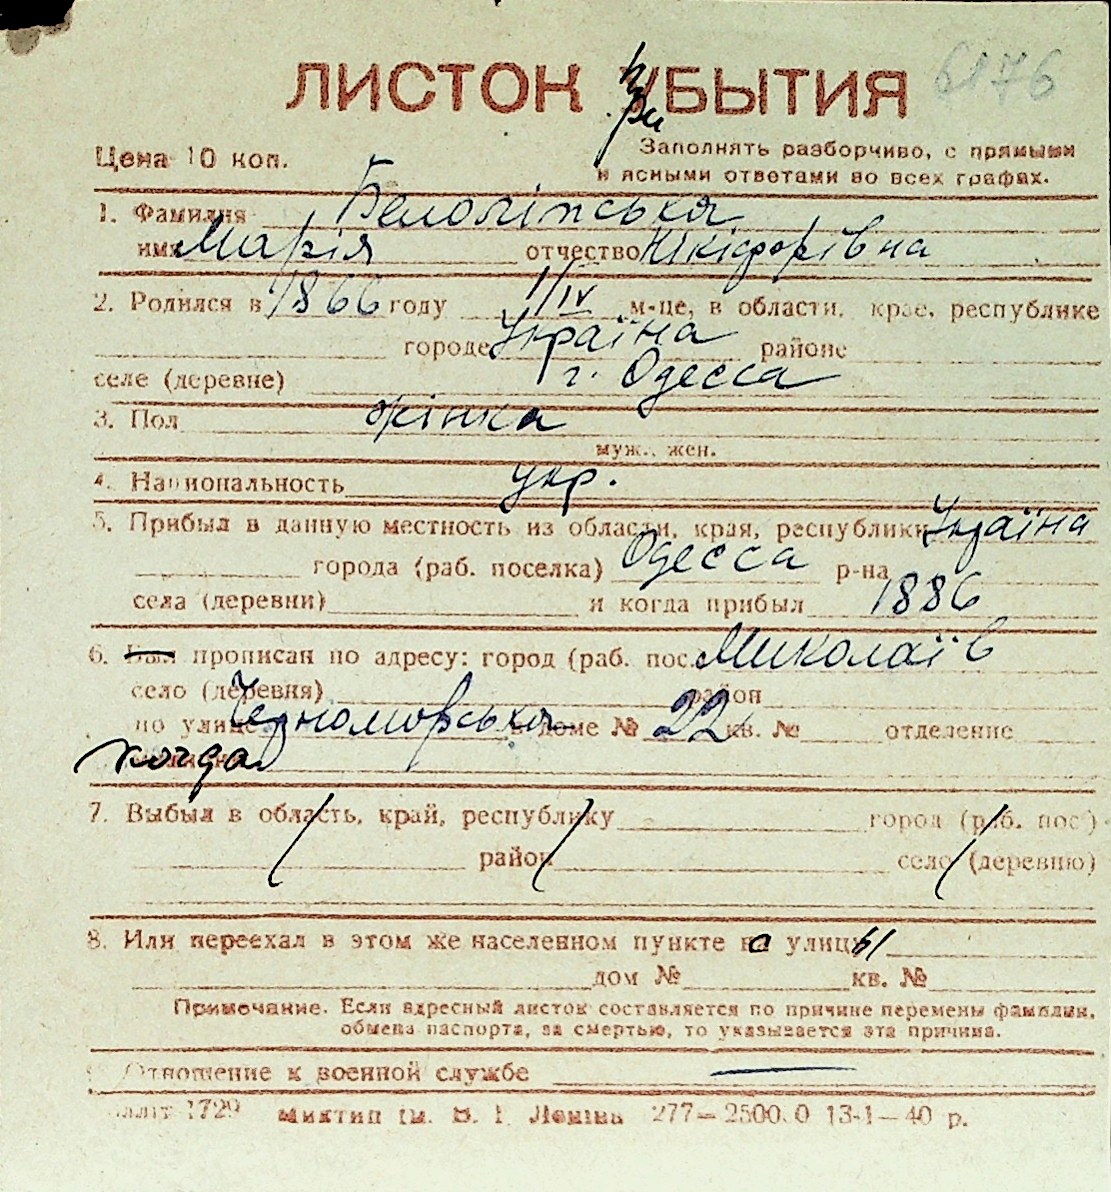 6176
ЛИСТОК УБЫТИЯ
при
Цена 10 коп.
Заполнять разборчиво, с прямыми
и ясными ответами во всех графах.
1. Фамилия Белолінська
имя Марія отчество Нікіфорівна
2. Родился в 1866 году 1/IV м-це, в области, крае, республике
городе Україна районе
селе (деревне) г. Одесса
3. Пол жінка
муж., жен.
4. Национальность укр.
5. Прибыл в данную местность из области, края, республики Україна
города (раб. поселка) Одесса р-на
села (деревни) и когда прибыл 1886
6. Был прописан по адресу: город (раб. пос. Миколаїв
село (деревня) район
по улице Черноморська в доме № 22 кв. № отделение
когда
7. Выбыл в область, край, республику город (раб. пос)
район село (деревню)
8. Или переехал в этом же населенном пункте на улицы
дом № кв. №
Примечание. Если адресный листок составляется по причине перемены фамилии,
обмена паспорта, за смертью, то указывается эта причина.
Отношение к военной службе
1729 ім. В. І. Леніна 277—2500.0 13-1—40 р.